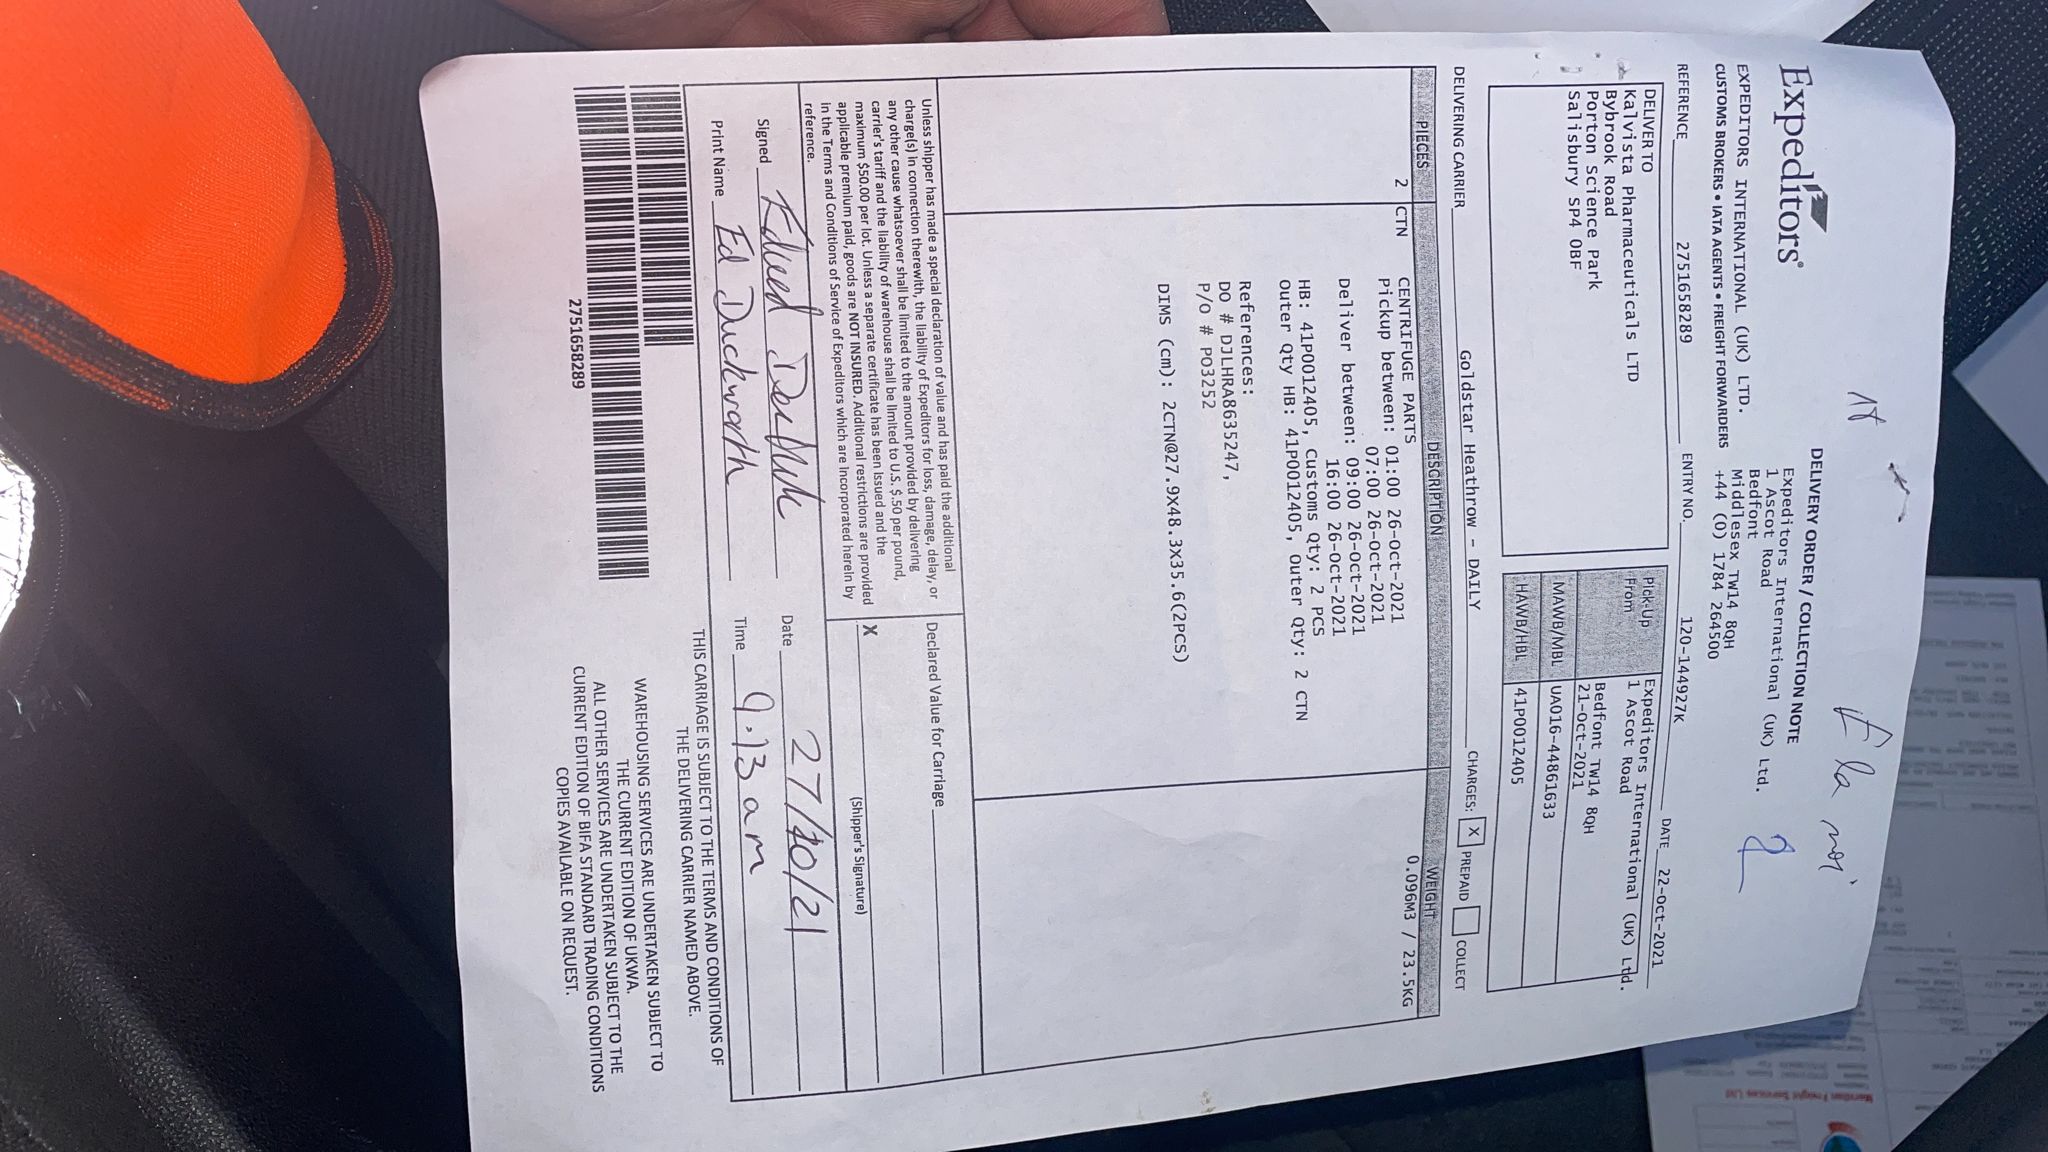 Expeditors®
DELIVERY ORDER / COLLECTION NOTE
EXPEDITORS INTERNATIONAL (UK) LTD.
CUSTOMS BROKERS • IATA AGENTS • FREIGHT FORWARDERS
Expeditors International (UK) Ltd.
1 Ascot Road
Bedfont
Middlesex TW14 8QH
+44 (0) 1784 264500
REFERENCE 2751658289 ENTRY NO. 120-144927K DATE 22-Oct-2021
DELIVER TO
Kalvista Pharmaceuticals LTD
Bybrook Road
Porton Science Park
Salisbury SP4 0BF
Pick-Up From
Expeditors International (UK) Ltd.
1 Ascot Road
Bedfont TW14 8QH
21-Oct-2021
MAWB/MBL UA016-44861633
HAWB/HBL 41P0012405
DELIVERING CARRIER Goldstar Heathrow - DAILY CHARGES: X PREPAID COLLECT
PIECES DESCRIPTION WEIGHT
2 CTN CENTRIFUGE PARTS 0.096M3 / 23.5KG
Pickup between: 01:00 26-Oct-2021
07:00 26-Oct-2021
Deliver between: 09:00 26-Oct-2021
16:00 26-Oct-2021
HB: 41P0012405, Customs Qty: 2 PCS
Outer Qty HB: 41P0012405, Outer Qty: 2 CTN
References:
DO # DJLHRA8635247,
P/O # PO3252
DIMS (cm): 2CTN@27.9X48.3X35.6(2PCS)
Unless shipper has made a special declaration of value and has paid the additional
charge(s) in connection therewith, the liability of Expeditors for loss, damage, delay, or
any other cause whatsoever shall be limited to the amount provided by delivering
carrier's tariff and the liability of warehouse shall be limited to U.S. $.50 per pound,
maximum $50.00 per lot. Unless a separate certificate has been issued and the
applicable premium paid, goods are NOT INSURED. Additional restrictions are provided
in the Terms and Conditions of Service of Expeditors which are incorporated herein by
reference.
Declared Value for Carriage
X
(Shipper's Signature)
Signed Date 27/10/21
Print Name Ed Duckworth Time 9.13am
THIS CARRIAGE IS SUBJECT TO THE TERMS AND CONDITIONS OF
THE DELIVERING CARRIER NAMED ABOVE.
WAREHOUSING SERVICES ARE UNDERTAKEN SUBJECT TO
THE CURRENT EDITION OF UKWA.
ALL OTHER SERVICES ARE UNDERTAKEN SUBJECT TO THE
CURRENT EDITION OF BIFA STANDARD TRADING CONDITIONS
COPIES AVAILABLE ON REQUEST.
2751658289
Meridian Freight Services Ltd